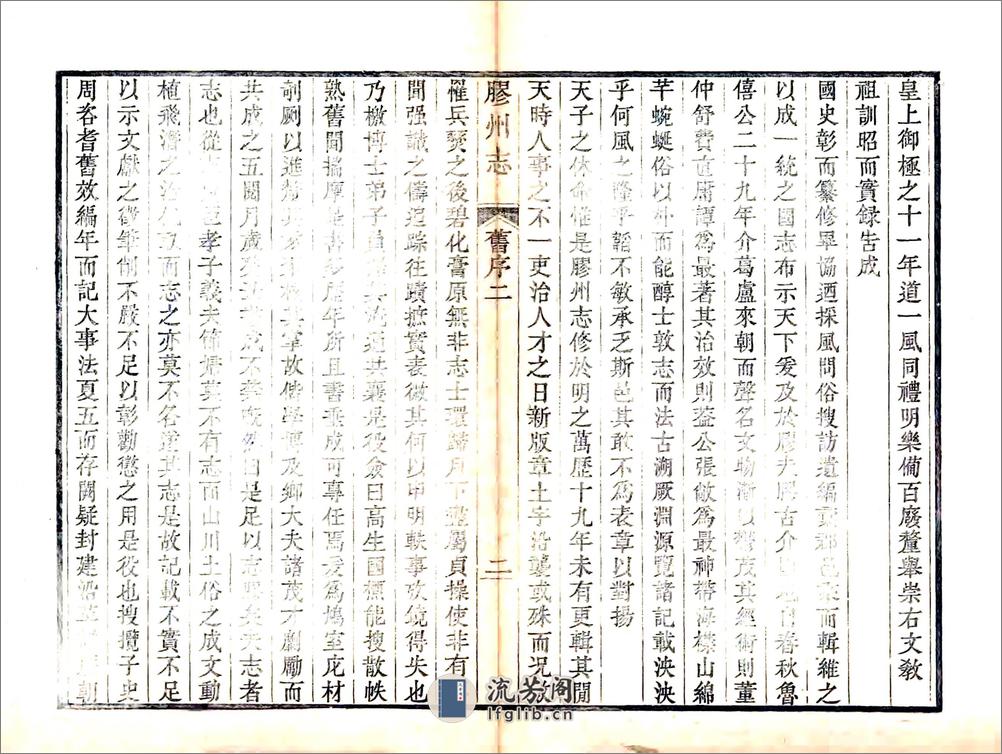 皇上御極之十一年道一風同禮明樂備百廢釐舉崇右文教
祖訓昭而實錄告成
國史彰而纂修畢協迺採風問俗搜訪遺編郡邑而輯維之
以成一統之國志布示天下爰及於膠夫膠古介地自春秋魯
僖公二十九年介葛盧來朝而聲名文物漸以蕃茂其經術則董
仲舒費直庸譚為最著其治效則蓋公張敞為最神帶海襟山綿
芊蜿蜒俗以朴而能醇士敦志而法古溯厥淵源覽諸記載泱泱
乎何風之隆乎韜不敏承乏斯邑其敢不為表章以對揚
天子之休命惟是膠州志修於明之萬歷十九年未有更輯其閒
天時人事之不一吏治人才之日新版章土宇沿襲或殊而况
膠州志
舊序二
二
罹兵燹之後碧化膏原無非志士環歸月下盡屬貞操使非有
聞强識之儔追踪往蹟摭實表微其何以申明軼事攷鏡得失也
乃檄博士弟子共襄是役僉曰高生國標能搜散帙
熟舊聞揣摩是書多歷年所且書垂成可專任焉爰為鳩室庀材
剞劂以進其事故偕學博及鄉大夫諸茂才劘勵而
共成之五閱月歲曰是足以志膠矣夫志者
志也從孝子義夫節婦莫不有志而山川土俗之成文動
植飛潛之而志之亦莫不各產其志是故記載不實不足
以示文獻之徵筆削不嚴不足以彰勸懲之用是役也搜攬子史
周咨耆舊效編年而記大事法夏五而存闕疑封建沿革朝
流芳閣
lfglib.cn